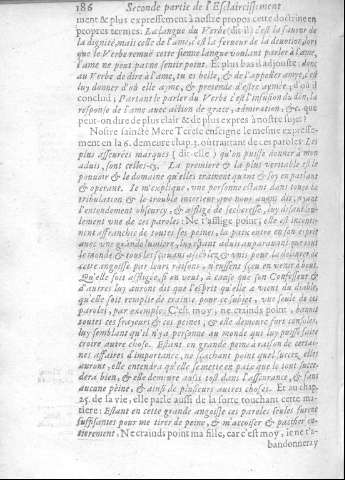 186 Seconde partie de l'Esclaircissement
ment & plus expressement à nostre propos cette doctrine en
propres termes: La langue du Verbe (dit-il) c'est la faueur de
la dignité, mais celle de l'ame, c'est la ferueur de la deuotion, donc
que le Verbe remuë cette sienne langue voulant parler à l'ame,
l'ame ne peut pas ne sentir point. Et plus bas il adjouste; donc
au Verbe de dire à l'ame, tu es belle, & de l'appeller amye, c'est
luy donner d'où elle ayme, & pretende d'estre aymée; d'où il
conclud; Partant le parler du Verbe c'est l'infusion du don, la
responce de l'ame auec action de grace, admiration, &c. que
peut-on dire de plus clair & de plus expres à nostre sujet?
Nostre saincte Mere Terese enseigne le mesme expresse-
ment en la 6. demeure chap. 3. où traitant de ces paroles: Les
plus asseurées marques (dit-elle) qu'on puisse donner à mon
aduis, sont celles-cy. La premiere & la plus veritable est le
pouuoir & le domaine qu'elles trainent quant & soy en parlant
& operant. Ie m'explique, vne personne estant dans toute la
tribulation & le trouble interieur que nous auons dit, ayant
l'entendement obscurcy, & affligé de secheresse, luy disant seu-
lement vne de ces paroles: Ne t'afflige point; elle est inconti-
nent affranchie de toutes ses peines, la paix entre en son esprit
auec vne grande lumiere, luy estant aduis auparauant que tout
le monde & tous les sçauans
cette angoisse par leurs raisons, n'eussent sçeu en venir about.
Qu'elle soit affligée, si on veut, à cause que son Confesseur &
d'autres luy auront dit que l'esprit qu'elle a vient du diable,
qu'elle soit remplie de crainte pour ce sujet, vne seule de ces
paroles, par exemple: C'est moy; ne crains point, bannit
toutes ces frayeurs & ces peines, & elle demeure fort consolée,
luy semblant qu'il n'y a personne au monde qui luy puisse faire
croire autre chose. Estant en grande peine à raison de certai-
nes affaires d'importance, ne sçachant point quel succez elles
auront, elle entendra qu'elle se mette en paix que le tout succe-
dera bien, & elle demeure aussi tost dans l'asseurance, & sans
aucune peine, & ainsi de plusieurs autres choses. Et au chap.
25. de sa vie, elle parle aussi de la sorte touchant cette ma-
tiere: Estant en cette grande angoisse ces paroles seules furent
suffisantes pour me tirer de peine, & m'accoiser & pacifier en-
tierement, Ne crains point ma fille, car c'est moy, ie ne t'a-
bandonneray